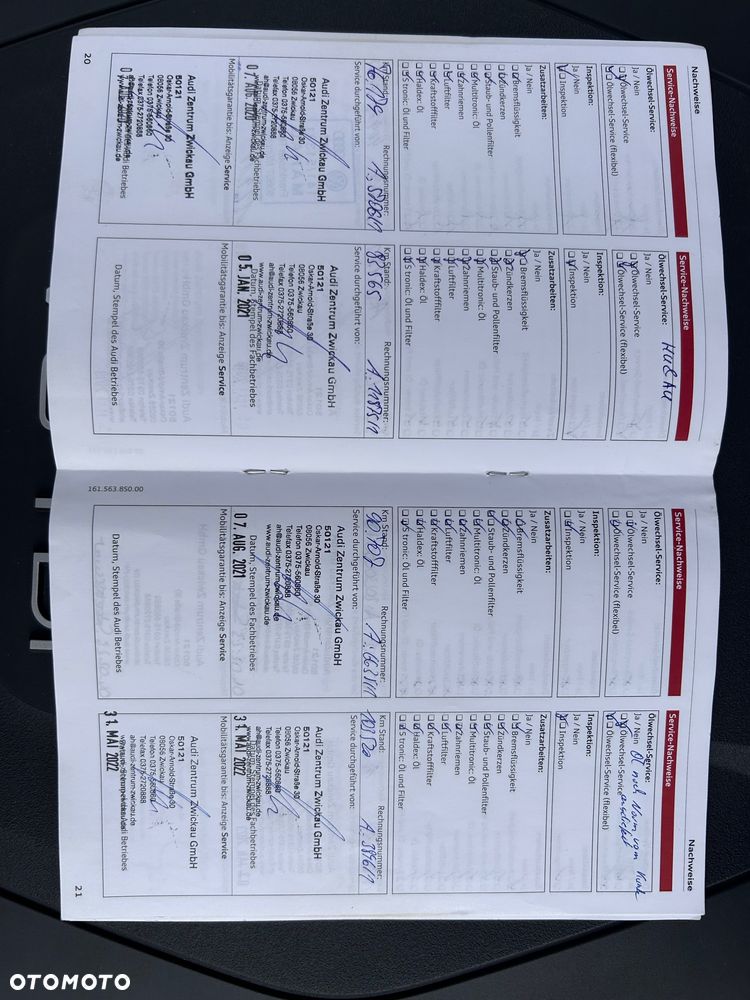 Nachweise
20
Service-Nachweise
Ölwechsel-Service:
Ja / Nein
Ölwechsel-Service
Ölwechsel-Service (flexibel)
Inspektion:
Ja / Nein
Inspektion
Zusatzarbeiten:
Ja / Nein
Bremsflüssigkeit
Zündkerzen
Staub- und Pollenfilter
Multitronic: Öl
Zahnriemen
Luftfilter
Kraftstofffilter
Haldex: Öl
S tronic: Öl und Filter
Km Stand:
Rechnungsnummer:
Service durchgeführt von:
Audi Zentrum Zwickau GmbH
50121
Oskar-Arnold-Straße 30
08056 Zwickau
07. AUG. 2020
Mobilitätsgarantie bis: Anzeige Service
Audi Zentrum Zwickau GmbH
50121
Oskar-Arnold-Straße 30
08056 Zwickau
Telefon 0375-560860
Telefax 0375-2720888
Service-Nachweise
HU & AU
Ölwechsel-Service:
Ja / Nein
Ölwechsel-Service
Ölwechsel-Service (flexibel)
Inspektion:
Ja / Nein
Inspektion
Zusatzarbeiten:
Ja / Nein
Bremsflüssigkeit
Zündkerzen
Staub- und Pollenfilter
Multitronic: Öl
Zahnriemen
Luftfilter
Kraftstofffilter
Haldex: Öl
S tronic: Öl und Filter
Km Stand:
Rechnungsnummer:
82565
Service durchgeführt von:
Audi Zentrum Zwickau GmbH
50121
Oskar-Arnold-Straße 30
08056 Zwickau
Telefon 0375-560860
Telefax 0375-2720888
ah@audi-zentrum-zwickau.de
www.audi-zentrum-zwickau.de
05. JAN. 2021
Datum, Stempel des Fachbetriebes
Mobilitätsgarantie bis: Anzeige Service
Datum, Stempel des Audi Betriebes
161.563.850.00
Service-Nachweise
Ölwechsel-Service:
Ja / Nein
Ölwechsel-Service
Ölwechsel-Service (flexibel)
Inspektion:
Ja / Nein
Inspektion
Zusatzarbeiten:
Ja / Nein
Bremsflüssigkeit
Zündkerzen
Staub- und Pollenfilter
Multitronic: Öl
Zahnriemen
Luftfilter
Kraftstofffilter
Haldex: Öl
S tronic: Öl und Filter
Km Stand:
Rechnungsnummer:
Service durchgeführt von:
Audi Zentrum Zwickau GmbH
50121
Oskar-Arnold-Straße 30
08056 Zwickau
Telefon 0375-560860
Telefax 0375-2720888
ah@audi-zentrum-zwickau.de
www.audi-zentrum-zwickau.de
Datum, Stempel des Fachbetriebes
07. AUG. 2021
Mobilitätsgarantie bis: Anzeige Service
Datum, Stempel des Audi Betriebes
Nachweise
21
Service-Nachweise
Ölwechsel-Service:
Ja / Nein Öl nach Norm vom
Ölwechsel-Service
Ölwechsel-Service (flexibel)
Inspektion:
Ja / Nein
Inspektion
Zusatzarbeiten:
Ja / Nein
Bremsflüssigkeit
Zündkerzen
Staub- und Pollenfilter
Multitronic: Öl
Zahnriemen
Luftfilter
Kraftstofffilter
Haldex: Öl
S tronic: Öl und Filter
Km Stand:
Rechnungsnummer:
Service durchgeführt von:
Audi Zentrum Zwickau GmbH
50121
Oskar-Arnold-Straße 30
08056 Zwickau
Telefon 0375-560860
Telefax 0375-2720888
31. MAI 2022
Mobilitätsgarantie bis: Anzeige Service
Audi Zentrum Zwickau GmbH
50121
Oskar-Arnold-Straße 30
08056 Zwickau
Telefon 0375-560860
Telefax 0375-2720888
31. MAI 2022
OTOMOTO